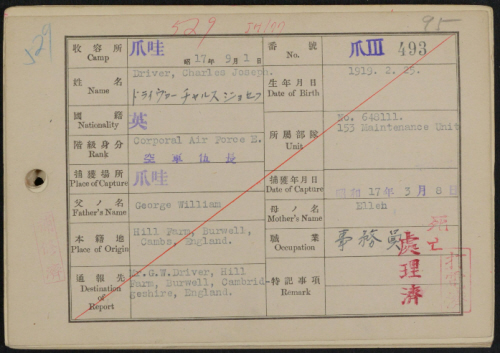 529
529
95
收容所
Camp
爪哇
昭17年9月1日
番號
No.
爪III 493
姓名
Name
Driver, Charles Joseph.
ドライヴァー チャルス ジョセフ
生年月日
Date of Birth
1919. 2. 25.
國籍
Nationality
英
所屬部隊
Unit
No. 648111.
153 Maintenance Unit
階級身分
Rank
Corporal Air Force E.
空軍伍長
捕獲場所
Place of Capture
爪哇
捕獲年月日
Date of Capture
昭和17年3月8日
父ノ名
Father's Name
George William
母ノ名
Mother's Name
Ellen
本籍地
Place of Origin
Hill Farm, Burwell,
Cambs, England.
職業
Occupation
事務員
死亡
處理濟
通報先
Destination of Report
Mr.G.W.Driver, Hill
Farm, Burwell, Cambrid-
geshire, England.
特記事項
Remark